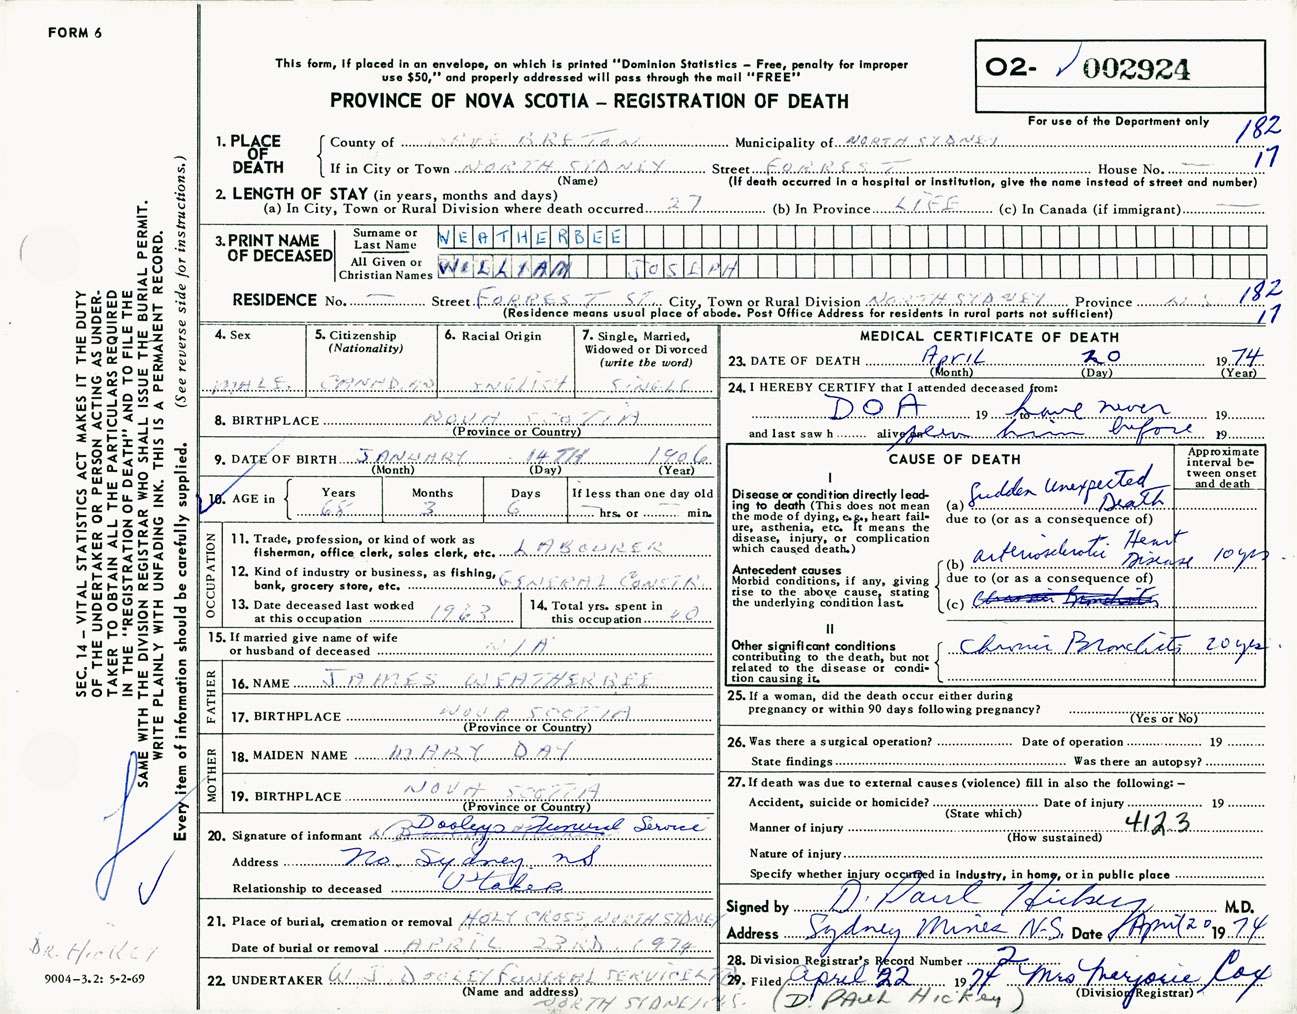 FORM 6
This form, if placed in an envelope, on which is printed "Dominion Statistics – Free, penalty for improper
use $50," and properly addressed will pass through the mail "FREE"
PROVINCE OF NOVA SCOTIA – REGISTRATION OF DEATH
02- ✓ 002924
For use of the Department only
182
17
1. PLACE OF DEATH
County of CAPE BRETON Municipality of NORTH SYDNEY
If in City or Town NORTH SYDNEY Street FORREST House No. —
(Name) (If death occurred in a hospital or institution, give the name instead of street and number)
2. LENGTH OF STAY (in years, months and days)
(a) In City, Town or Rural Division where death occurred 27 (b) In Province LIFE (c) In Canada (if immigrant) —
3. PRINT NAME OF DECEASED
Surname or Last Name WEATHERBEE
All Given or Christian Names WILLIAM JOSEPH
RESIDENCE No. — Street FORREST ST. City, Town or Rural Division NORTH SYDNEY Province N.S. 182
(Residence means usual place of abode. Post Office Address for residents in rural parts not sufficient) 17
4. Sex MALE
5. Citizenship (Nationality) CANADIAN
6. Racial Origin ENGLISH
7. Single, Married, Widowed or Divorced (write the word) SINGLE
8. BIRTHPLACE NOVA SCOTIA
(Province or Country)
9. DATE OF BIRTH JANUARY 14TH 1906
(Month) (Day) (Year)
10. AGE in Years 68 Months 3 Days 6 If less than one day old — hrs. or — min.
OCCUPATION
11. Trade, profession, or kind of work as fisherman, office clerk, sales clerk, etc. LABOURER
12. Kind of industry or business, as fishing, bank, grocery store, etc. GENERAL CONSTR.
13. Date deceased last worked at this occupation 1963
14. Total yrs. spent in this occupation 40
15. If married give name of wife or husband of deceased N/A
FATHER
16. NAME JAMES WEATHERBEE
17. BIRTHPLACE NOVA SCOTIA
(Province or Country)
MOTHER
18. MAIDEN NAME MARY DAY
19. BIRTHPLACE NOVA SCOTIA
(Province or Country)
20. Signature of informant Dooleys Funeral Service
Address No. Sydney, NS
Relationship to deceased U'taker
21. Place of burial, cremation or removal HOLY CROSS NORTH SYDNEY
Date of burial or removal APRIL 23RD 1974
22. UNDERTAKER W. J. DOOLEY FUNERAL SERVICE LTD
(Name and address)
NORTH SYDNEY, N.S.
MEDICAL CERTIFICATE OF DEATH
23. DATE OF DEATH April 20 1974
(Month) (Day) (Year)
24. I HEREBY CERTIFY that I attended deceased from:
DOA 19 to have never 19
and last saw h alive on seen him before 19
CAUSE OF DEATH
Approximate interval between onset and death
I
Disease or condition directly leading to death (This does not mean the mode of dying, e.g., heart failure, asthenia, etc. It means the disease, injury, or complication which caused death.)
(a) Sudden Unexpected Death
due to (or as a consequence of)
Antecedent causes
Morbid conditions, if any, giving rise to the above cause, stating the underlying condition last.
(b) arteriosclerotic Heart Disease 10 yrs.
due to (or as a consequence of)
(c) Chronic Bronchitis
II
Other significant conditions contributing to the death, but not related to the disease or condition causing it.
Chronic Bronchitis 20 yrs.
25. If a woman, did the death occur either during pregnancy or within 90 days following pregnancy?
(Yes or No)
26. Was there a surgical operation? Date of operation 19
State findings Was there an autopsy?
27. If death was due to external causes (violence) fill in also the following: –
Accident, suicide or homicide? Date of injury 19
(State which)
Manner of injury 4123
(How sustained)
Nature of injury
Specify whether injury occurred in industry, in home, or in public place
Signed by D. Paul Hickey M.D.
Address Sydney Mines N.S. Date April 20 1974
28. Division Registrar's Record Number 2
29. Filed April 22 1974 Mrs Marjorie Cox
(Division Registrar)
(D. PAUL HICKEY)
SEC. 14 – VITAL STATISTICS ACT MAKES IT THE DUTY
OF THE UNDERTAKER OR PERSON ACTING AS UNDER-
TAKER TO OBTAIN ALL THE PARTICULARS REQUIRED
IN THE "REGISTRATION OF DEATH" AND TO FILE THE
SAME WITH THE DIVISION REGISTRAR WHO SHALL ISSUE THE BURIAL PERMIT.
WRITE PLAINLY WITH UNFADING INK. THIS IS A PERMANENT RECORD.
Every item of information should be carefully supplied. (See reverse side for instructions.)
DR. HICKEY
9004-3.2: 5-2-69